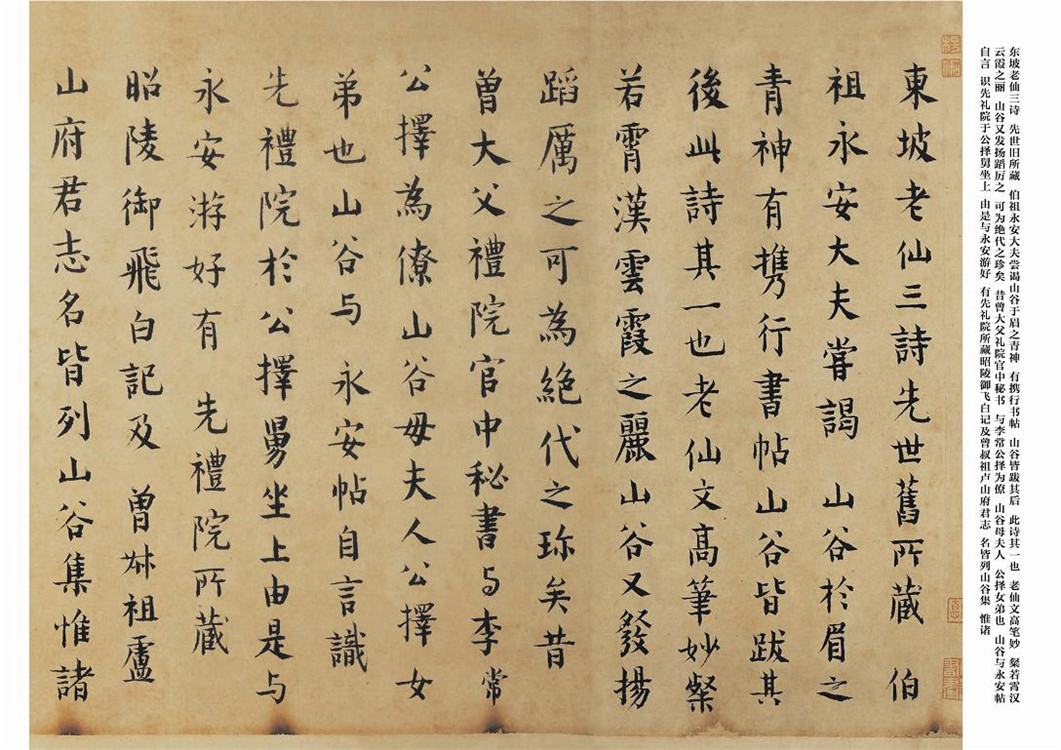 東坡老仙三詩先世舊所蔵 伯
祖永安大夫嘗謁 山谷於眉之
青神有携行書帖山谷皆跋其
後此詩其一也老仙文高筆妙粲
若霄漢雲霞之麗山谷又發揚
蹈厲之可為絶代之珎矣昔
曾大父禮院官中秘書与李常
公擇為僚山谷母夫人公擇女
弟也山谷与 永安帖自言識
先禮院於公擇舅坐上由是与
永安游好有 先禮院所蔵
昭陵御飛白記及 曾叔祖盧
山府君志名皆列山谷集惟諸
东坡老仙三诗 先世旧所藏 伯祖永安大夫尝谒山谷于眉之青神 有携行书帖 山谷皆跋其后 此诗其一也 老仙文高笔妙 粲若霄汉
云霞之丽 山谷又发扬蹈厉之 可为绝代之珍矣 昔曾大父礼院官中秘书 与李常公择为僚 山谷母夫人 公择女弟也 山谷与永安帖
自言 识先礼院于公择舅坐上 由是与永安游好 有先礼院所藏昭陵御飞白记及曾叔祖卢山府君志 名皆列山谷集 惟诸